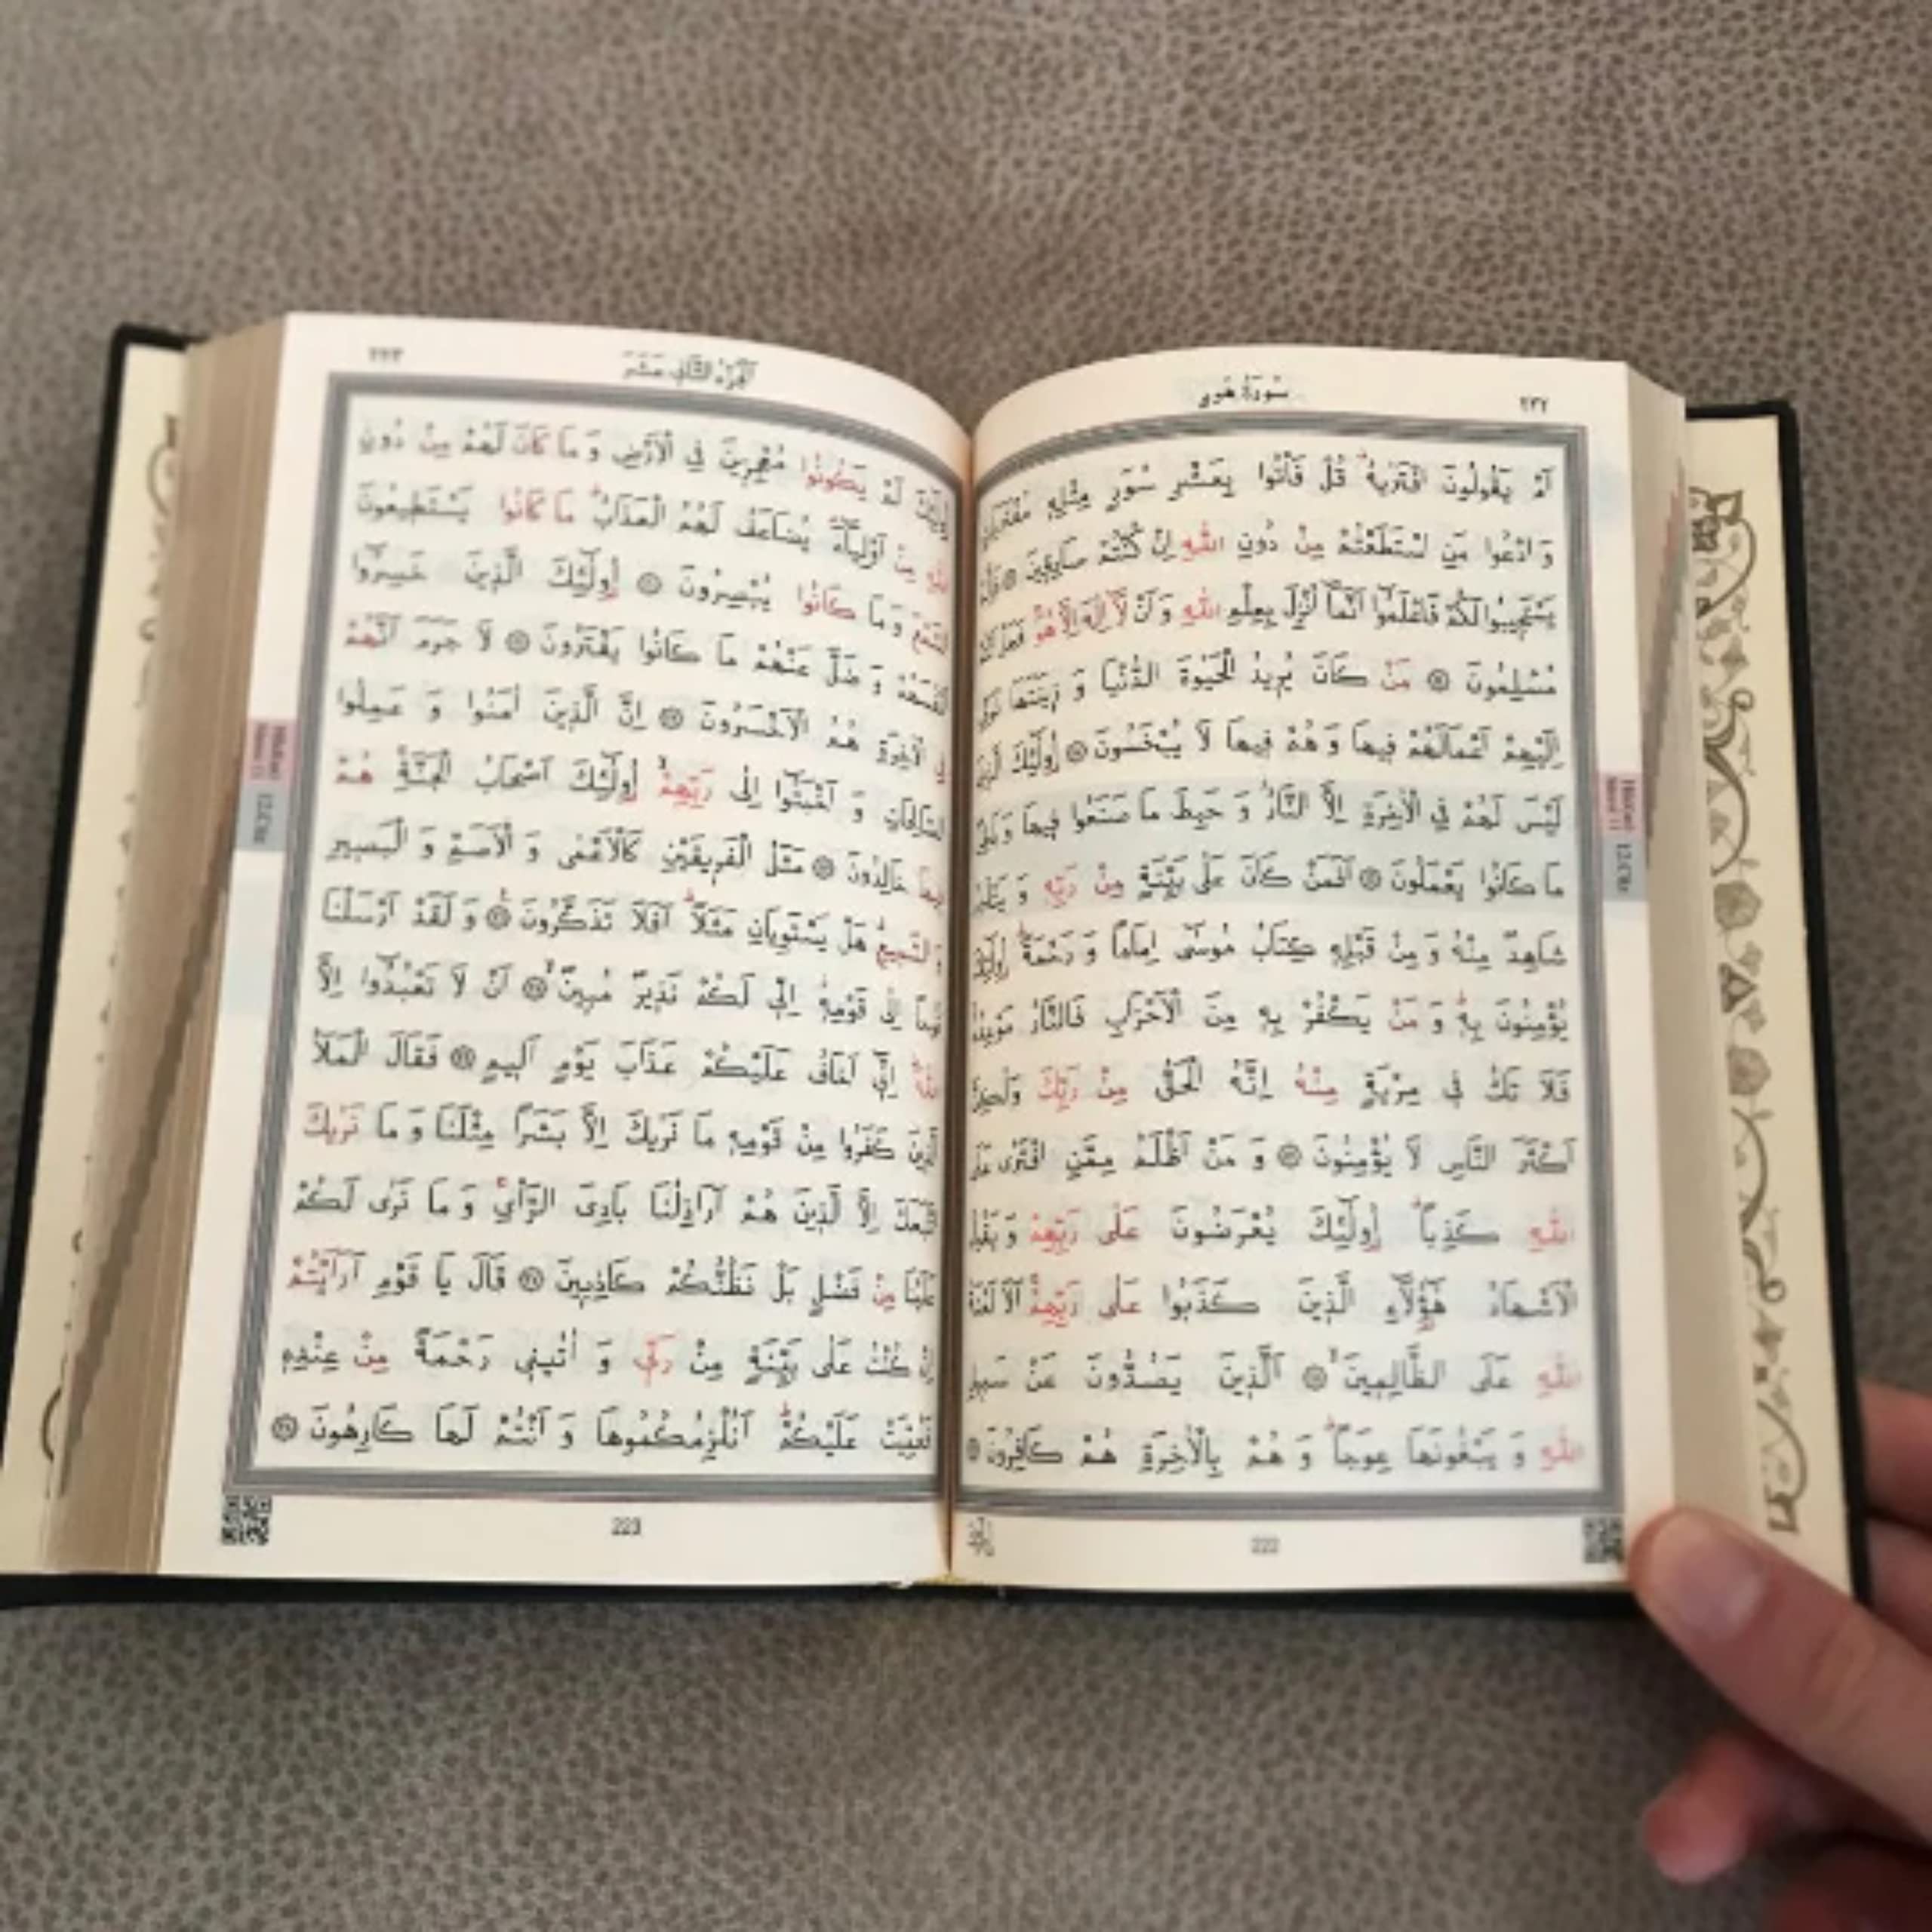 سُورَةُ هُودٍ
٢٢٢
اَمْ يَقُولُونَ افْتَرٰيهُ قُلْ فَأْتُوا بِعَشْرِ سُوَرٍ مِثْلِهِ مُفْتَرَيَاتٍ
وَ ادْعُوا مَنِ اسْتَطَعْتُمْ مِنْ دُونِ اللّٰهِ اِنْ كُنْتُمْ صَادِقِينَ
يَسْتَجِيبُوا لَكُمْ فَاعْلَمُوا اَنَّمَا اُنْزِلَ بِعِلْمِ اللّٰهِ وَ اَنْ لَا اِلٰهَ اِلَّا هُوَ فَهَلْ اَنْتُمْ
مُسْلِمُونَ مَنْ كَانَ يُرِيدُ الْحَيٰوةَ الدُّنْيَا وَ زِينَتَهَا نُوَفِّ
اِلَيْهِمْ اَعْمَالَهُمْ فِيهَا وَ هُمْ فِيهَا لَا يُبْخَسُونَ اُولٰٓئِكَ الَّذِينَ
لَيْسَ لَهُمْ فِي الْاٰخِرَةِ اِلَّا النَّارُ وَ حَبِطَ مَا صَنَعُوا فِيهَا وَ بَاطِلٌ
مَا كَانُوا يَعْمَلُونَ اَفَمَنْ كَانَ عَلٰى بَيِّنَةٍ مِنْ رَبِّهِ وَ يَتْلُوهُ
شَاهِدٌ مِنْهُ وَ مِنْ قَبْلِهِ كِتَابُ مُوسٰى اِمَامًا وَ رَحْمَةً اُولٰٓئِكَ
يُؤْمِنُونَ بِهِ وَ مَنْ يَكْفُرْ بِهِ مِنَ الْاَحْزَابِ فَالنَّارُ مَوْعِدُهُ
فَلَا تَكُ فِي مِرْيَةٍ مِنْهُ اِنَّهُ الْحَقُّ مِنْ رَبِّكَ وَلٰكِنَّ
اَكْثَرَ النَّاسِ لَا يُؤْمِنُونَ وَ مَنْ اَظْلَمُ مِمَّنِ افْتَرٰى عَلَى
اللّٰهِ كَذِبًا اُولٰٓئِكَ يُعْرَضُونَ عَلٰى رَبِّهِمْ وَ يَقُولُ
الْاَشْهَادُ هٰٓؤُلَاءِ الَّذِينَ كَذَبُوا عَلٰى رَبِّهِمْ اَلَا لَعْنَةُ
اللّٰهِ عَلَى الظَّالِمِينَ اَلَّذِينَ يَصُدُّونَ عَنْ سَبِيلِ
اللّٰهِ وَ يَبْغُونَهَا عِوَجًا وَ هُمْ بِالْاٰخِرَةِ هُمْ كَافِرُونَ
222
اَلْجُزْءُ الثَّانِي عَشَرَ
٢٢٣
اُولٰٓئِكَ لَمْ يَكُونُوا مُعْجِزِينَ فِي الْاَرْضِ وَ مَا كَانَ لَهُمْ مِنْ دُونِ
اللّٰهِ مِنْ اَوْلِيَاءَ يُضَاعَفُ لَهُمُ الْعَذَابُ مَا كَانُوا يَسْتَطِيعُونَ
السَّمْعَ وَ مَا كَانُوا يُبْصِرُونَ اُولٰٓئِكَ الَّذِينَ خَسِرُوا
اَنْفُسَهُمْ وَ ضَلَّ عَنْهُمْ مَا كَانُوا يَفْتَرُونَ لَا جَرَمَ اَنَّهُمْ
فِي الْاٰخِرَةِ هُمُ الْاَخْسَرُونَ اِنَّ الَّذِينَ اٰمَنُوا وَ عَمِلُوا
الصَّالِحَاتِ وَ اَخْبَتُوا اِلٰى رَبِّهِمْ اُولٰٓئِكَ اَصْحَابُ الْجَنَّةِ هُمْ
فِيهَا خَالِدُونَ مَثَلُ الْفَرِيقَيْنِ كَالْاَعْمٰى وَ الْاَصَمِّ وَ الْبَصِيرِ
وَ السَّمِيعِ هَلْ يَسْتَوِيَانِ مَثَلًا اَفَلَا تَذَكَّرُونَ وَ لَقَدْ اَرْسَلْنَا
نُوحًا اِلٰى قَوْمِهِ اِنِّي لَكُمْ نَذِيرٌ مُبِينٌ اَنْ لَا تَعْبُدُوا اِلَّا
اللّٰهَ اِنِّي اَخَافُ عَلَيْكُمْ عَذَابَ يَوْمٍ اَلِيمٍ فَقَالَ الْمَلَأُ
الَّذِينَ كَفَرُوا مِنْ قَوْمِهِ مَا نَرٰيكَ اِلَّا بَشَرًا مِثْلَنَا وَ مَا نَرٰيكَ
اتَّبَعَكَ اِلَّا الَّذِينَ هُمْ اَرَاذِلُنَا بَادِيَ الرَّأْيِ وَ مَا نَرٰى لَكُمْ
عَلَيْنَا مِنْ فَضْلٍ بَلْ نَظُنُّكُمْ كَاذِبِينَ قَالَ يَا قَوْمِ اَرَاَيْتُمْ
اِنْ كُنْتُ عَلٰى بَيِّنَةٍ مِنْ رَبِّي وَ اٰتٰينِي رَحْمَةً مِنْ عِنْدِهِ
فَعُمِّيَتْ عَلَيْكُمْ اَنُلْزِمُكُمُوهَا وَ اَنْتُمْ لَهَا كَارِهُونَ
223